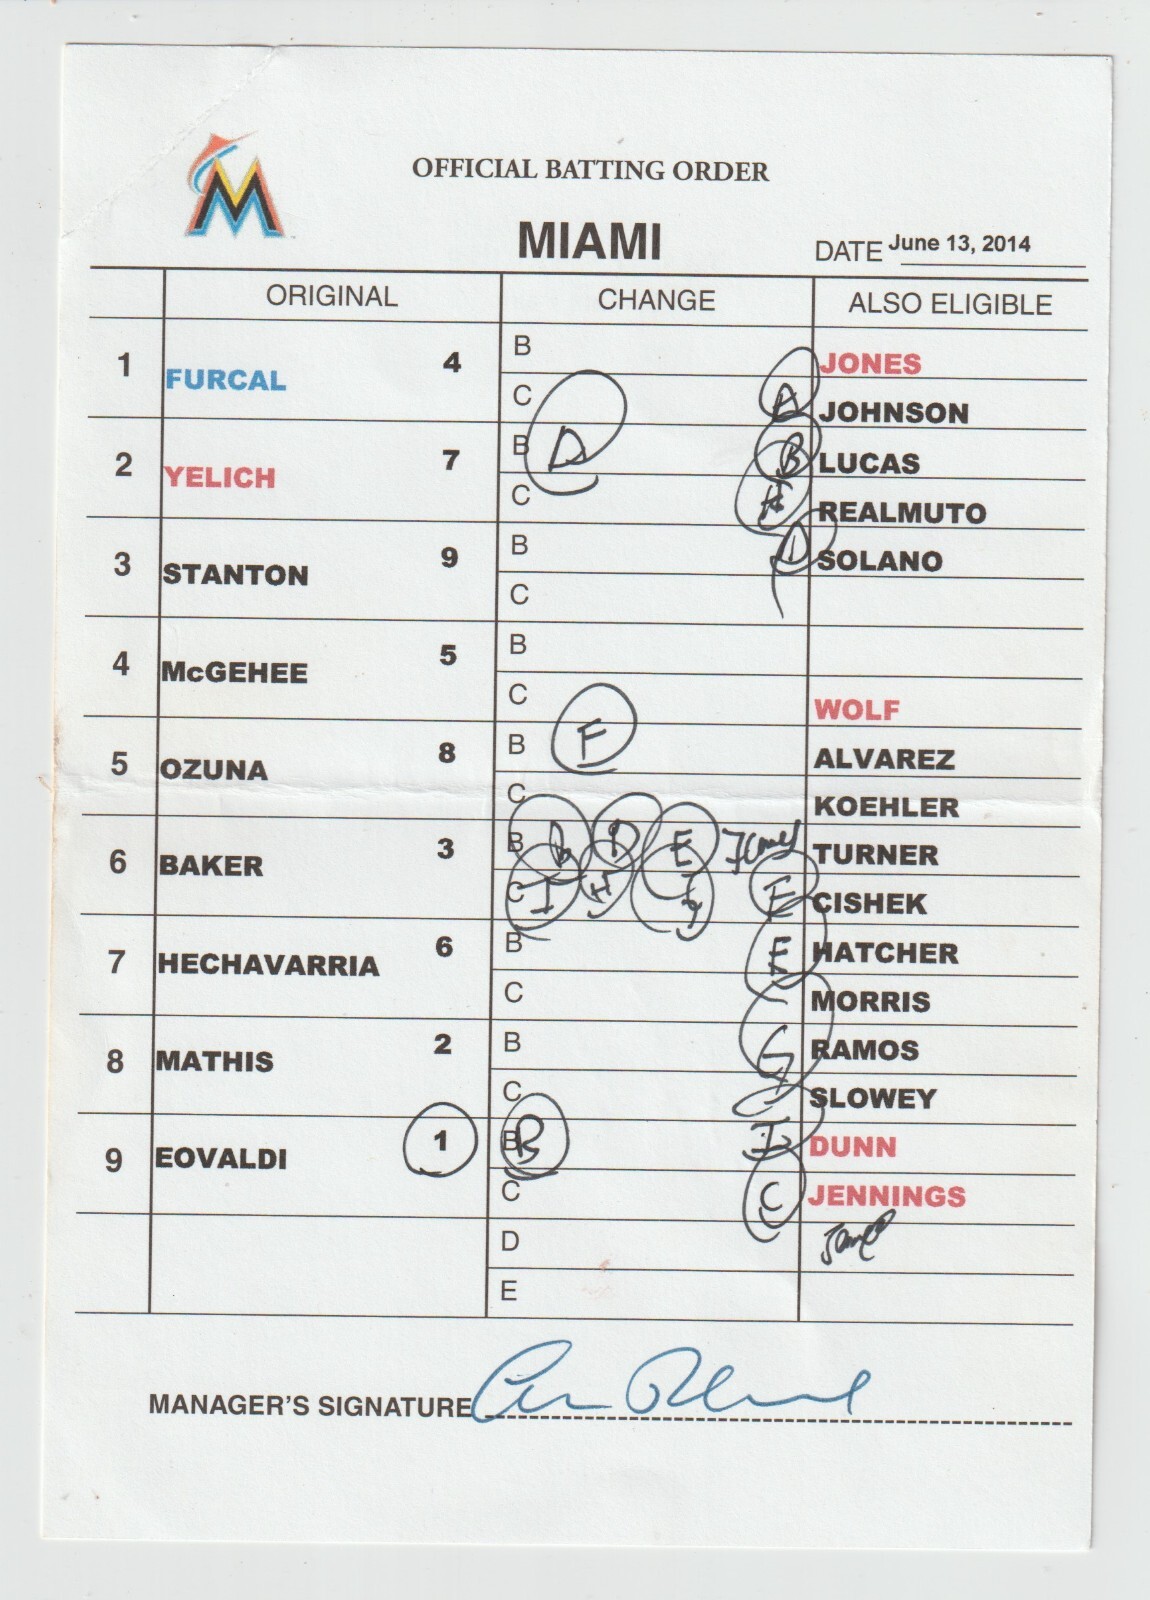 OFFICIAL BATTING ORDER
MIAMI
DATE June 13, 2014
ORIGINAL CHANGE ALSO ELIGIBLE
1 FURCAL 4 B JONES
C A JOHNSON
2 YELICH 7 B D B LUCAS
C H REALMUTO
3 STANTON 9 B D SOLANO
C
4 McGEHEE 5 B
C WOLF
5 OZUNA 8 B F ALVAREZ
C KOEHLER
6 BAKER 3 B D E TURNER
C I H CISHEK
7 HECHAVARRIA 6 B E HATCHER
C MORRIS
8 MATHIS 2 B G RAMOS
C SLOWEY
9 EOVALDI 1 B B I DUNN
C C JENNINGS
D
E
MANAGER'S SIGNATURE